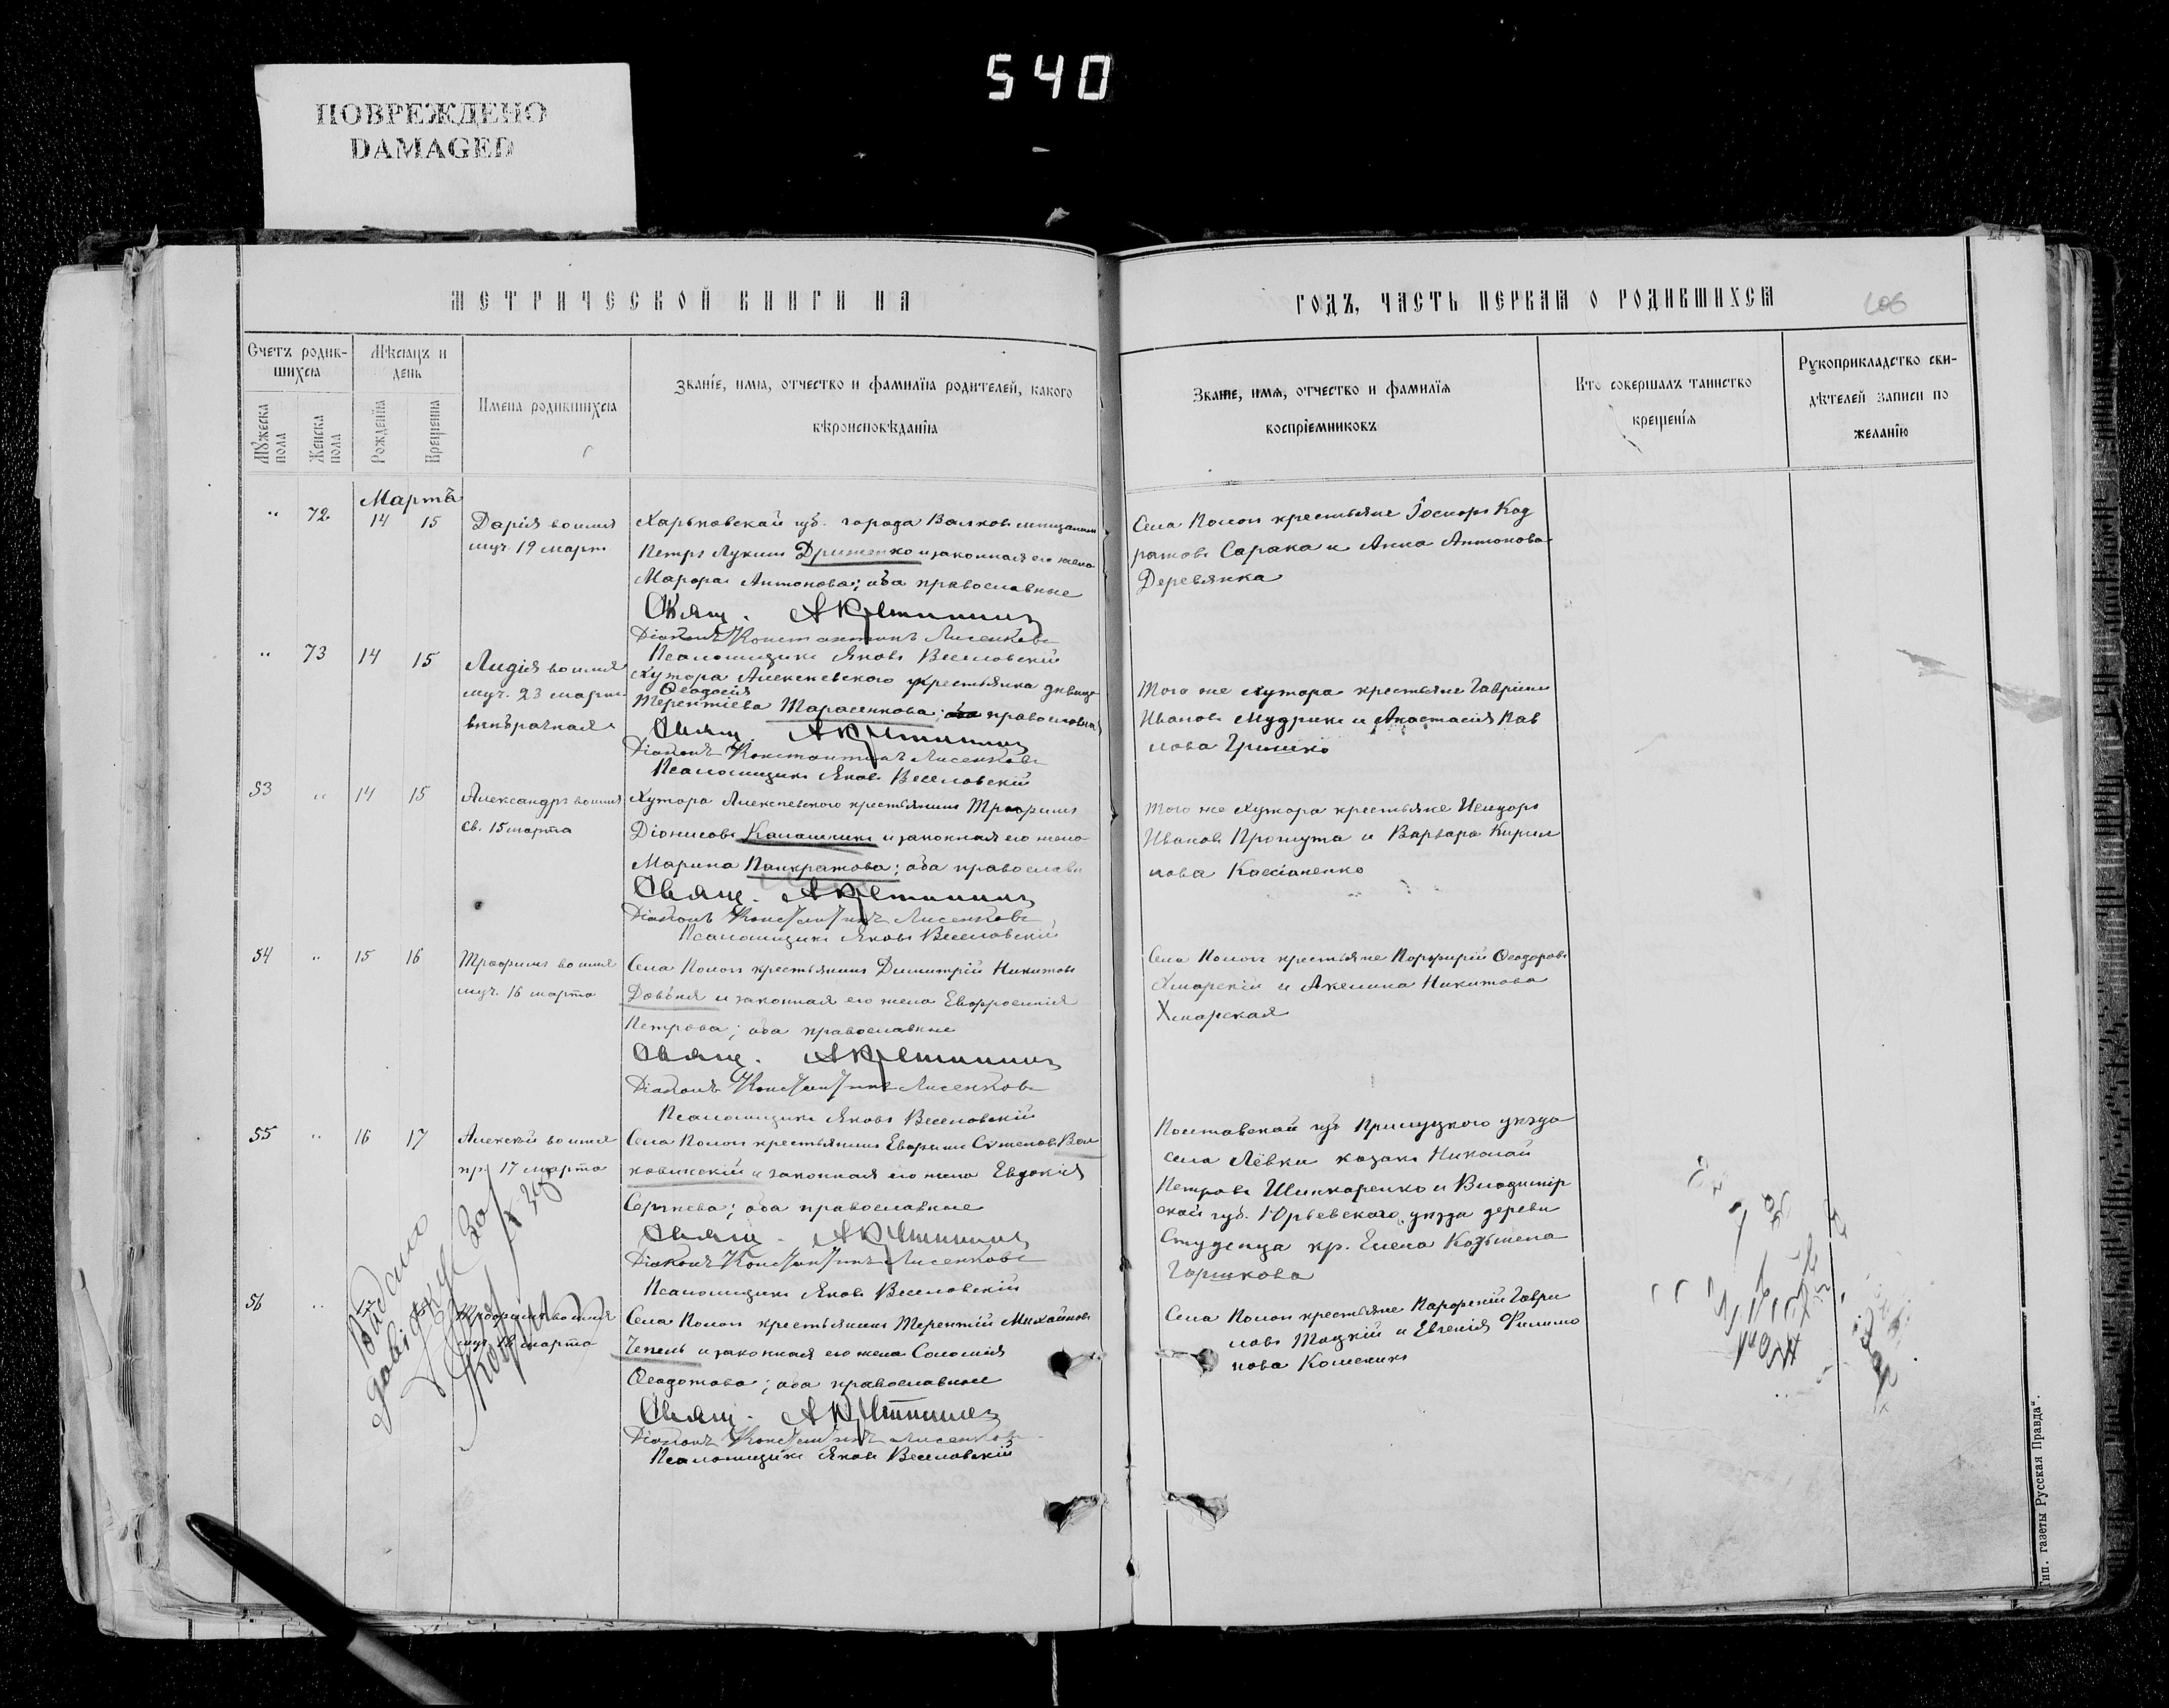 540
ПОВРЕЖДЕНО
DAMAGED
МЕТРИЧЕСКОЙ КНИГИ НА
ГОДЪ, ЧАСТЬ ПЕРВАЯ О РОДИВШИХСЯ
Счетъ родив-
шихся
Мѣсяцъ и
день
Мужеска
пола
Женска
пола
Рожденїя
Крещенїя
Имена родившихся
Званїе, имя, отчество и фамилїя родителей, какого
вѣроисповѣданїя
Званїе, имя, отчество и фамилїя
воспрїемниковъ
Кто совершалъ таинство
крещенїя
Рукоприкладство сви-
дѣтелей записи по
желанїю
Мартъ
" 72 14 15
Дарія во имя
муч. 19 март.
Харьковской губ. города Валковъ мещанинъ
Петръ Лукинъ и законная его жена
Марфа Антонова; оба православные
Свящ.
Діаконъ Константинъ Лисенковъ
Псаломщикъ Яковъ Веселовскій
Села Попон крестьяне Іосифъ Код
ратовъ Сарака и Анна Антонова
Деревянка
" 73 14 15
Лидія во имя
муч. 23 марта
внебрачная
Хутора Алексеевского крестьянка девица
Ѳеодосія
Терентіева Тарасенкова; православная
Свящ.
Діаконъ Константинъ Лисенковъ
Псаломщикъ Яковъ Веселовскій
Того же хутора крестьяне Гавріилъ
Ивановъ Мудрикъ и Анастасія Пав
лова Гришко
53 " 14 15
Александръ во имя
св. 15 марта
Хутора Алексеевского крестьянинъ Трофимъ
Діонисовъ Калашникъ и законная его жена
Марина Панкратова; оба православн
Свящ.
Діаконъ Константинъ Лисенковъ
Псаломщикъ Яковъ Веселовскій
Того же хутора крестьяне Исидоръ
Ивановъ и Варвара Кирил
лова Касіаненко
54 " 15 16
Трофимъ во имя
муч. 16 марта
Села крестьянинъ Димитрій Никитовъ
Довбня и законная его жена Евфросинія
Петрова; оба православные
Свящ.
Діаконъ Константинъ Лисенковъ
Псаломщикъ Яковъ Веселовскій
Села крестьяне Порфирій Ѳеодоровъ
Хмарскій и Акелина Никитова
Хмарская
55 " 16 17
Алексѣй во имя
пр. 17 марта
Села крестьянинъ Евфимъ Вол
ковинскій и законная его жена Евдокія
Сергеева; оба православные
Свящ.
Діаконъ Константинъ Лисенковъ
Псаломщикъ Яковъ Веселовскій
Полтавской губ. Прилуцкого уезда
села Лёвки козакъ Николай
Петровъ Шинкаренко и Владимір
ской губ. Юрьевского уезда дереви
Студенца кр. Елена Козьмена
Горшкова
56 "
Трофимъ во имя
муч. 18 марта
Села крестьянинъ Терентій Михайловъ
Чепель и законная его жена Соломія
Ѳеодотова; оба православные
Свящ.
Діаконъ Константинъ Лисенковъ
Псаломщикъ Яковъ Веселовскій
Села крестьяне Гаври
ловъ Тоцкій и Евгенія Филимо
нова
Видано
Тип. газеты Русская Правда".